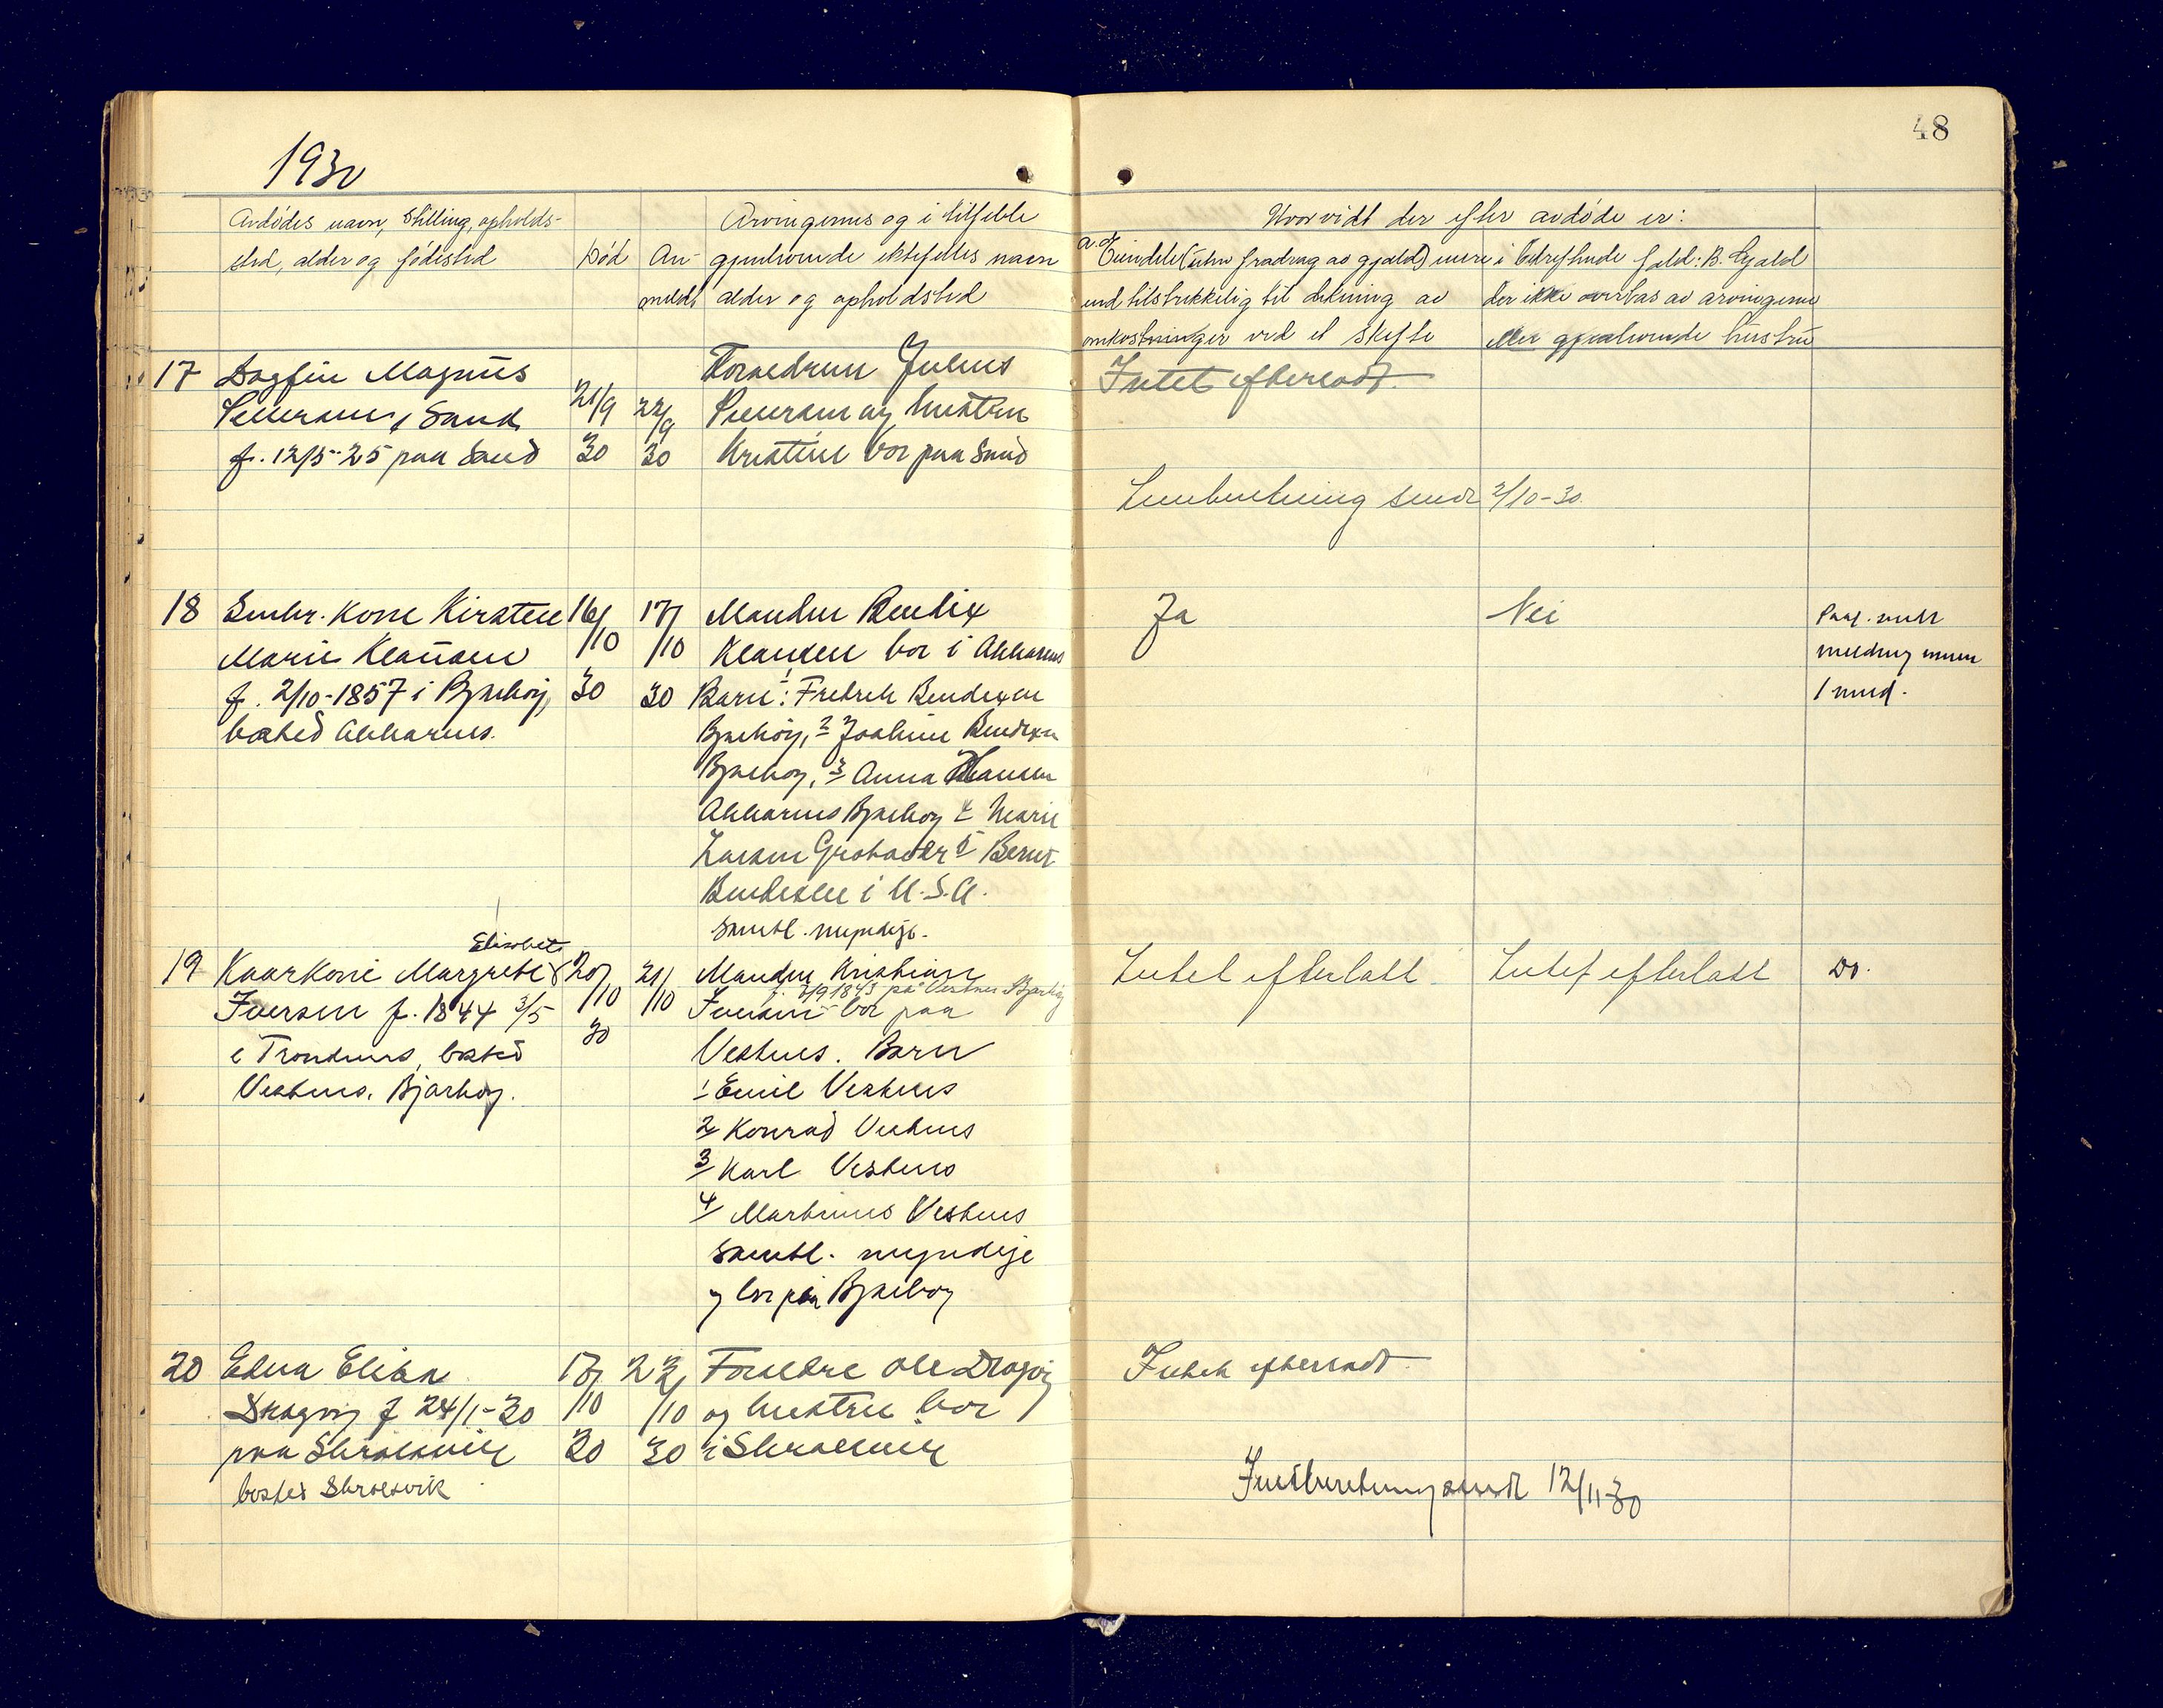 48
1930
Avdødes navn, stilling, opholds-
sted, alder og fødested
Død
An-
meldt
Arvingernes og i tilfelle
gjenlevende ektefelles navn
alder og opholdsted
Hvorvidt der efter avdøde er:
Eiendele (uten fradrag av gjæld) mere
end tilstrekkelig til dekning av
omkostninger ved et skifte
i betreffende fald: B. Gjæld
der ikke overtas av arvingerne
eller gjenlevende hustru
17 Dagfin Magnus
Sand
f. 12/5-25 paa Sand
21/9
30
22/9
30
Foraeldrene Julius
og hustru
Kristine bor paa Sand
Intet efterladt.
Innberetning sendt 2/10-30.
18 Kone Kirsten
Marie Klausen
f. 2/10-1857 i Bjarkøy,
bosted Akkarnes.
16/
/10
30
17/
/10
30
Manden Bendix
Klausen bor i Akkarnes
Barn: 1 Fredrik Bendixen
Bjarkøy, 2 Joakim Bendixen
Bjarkøy, 3 Anna Hansen
Akkarnes Bjarkøy 4 Marie
Larsen Grøtavær 5 Bernt
Bendixen i U.S.A.
samtl. myndige.
Ja
Nei
meldug innen
1 mnd.
Elisabet
19 Kaarkone Margrete
Iversen f. 1844 3/5
i Trondenes, bosted
Vestnes. Bjarkøy.
20/
/10
30
21/
/10
Manden Kristian
f. 7/9 1843 på Vestnes Bjarkøy
Iversen bor paa
Vestnes. Barn
1 Emil Vestnes
2 Konrad Vestnes
3 Karl Vestnes
4 Martinus Vestnes
samtl. myndige
og bor paa Bjarkøy
Intet efterlatt
Intet efterlatt
Do.
20 Edna Elisa
Dragøy f 24/1-30
paa Skrolsvik
bosted Skrolsvik
17/
/10
30
22/
/10
30
Foreldre Ole Dragøy
og hustru bor
i Skrolsvik
Intet efterladt.
Innberetning sendt 12/11-30